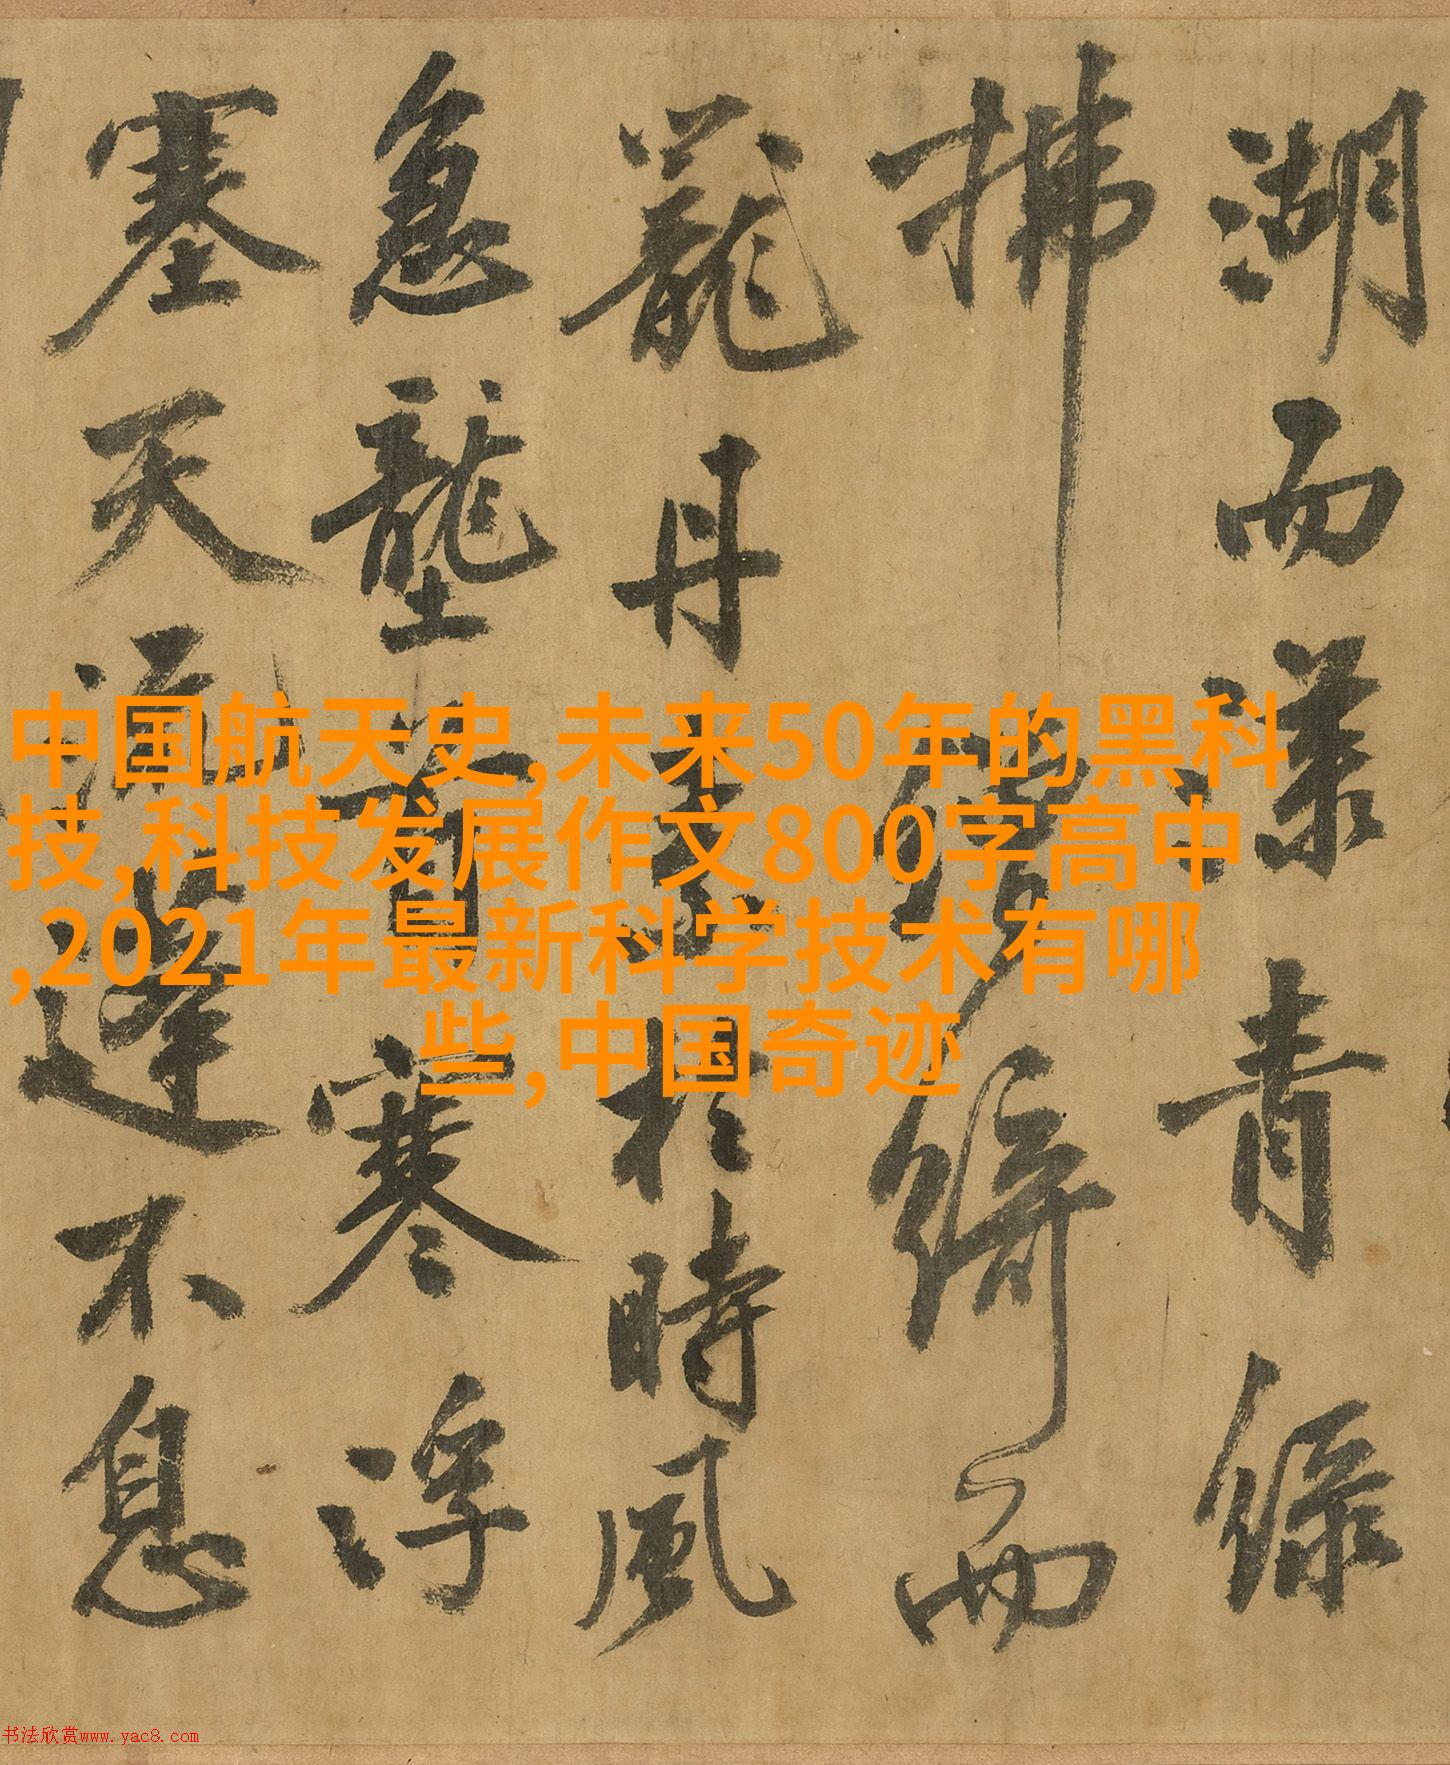 湖而漾青綠
拂綺而
丹於時風
急壟首寒浮
塞天流蓬不息
中国航天史,未来50年的黑科
技,科技发展作文800字高中
,2021年最新科学技术有哪
些,中国奇迹
书法欣赏www.yac8.com